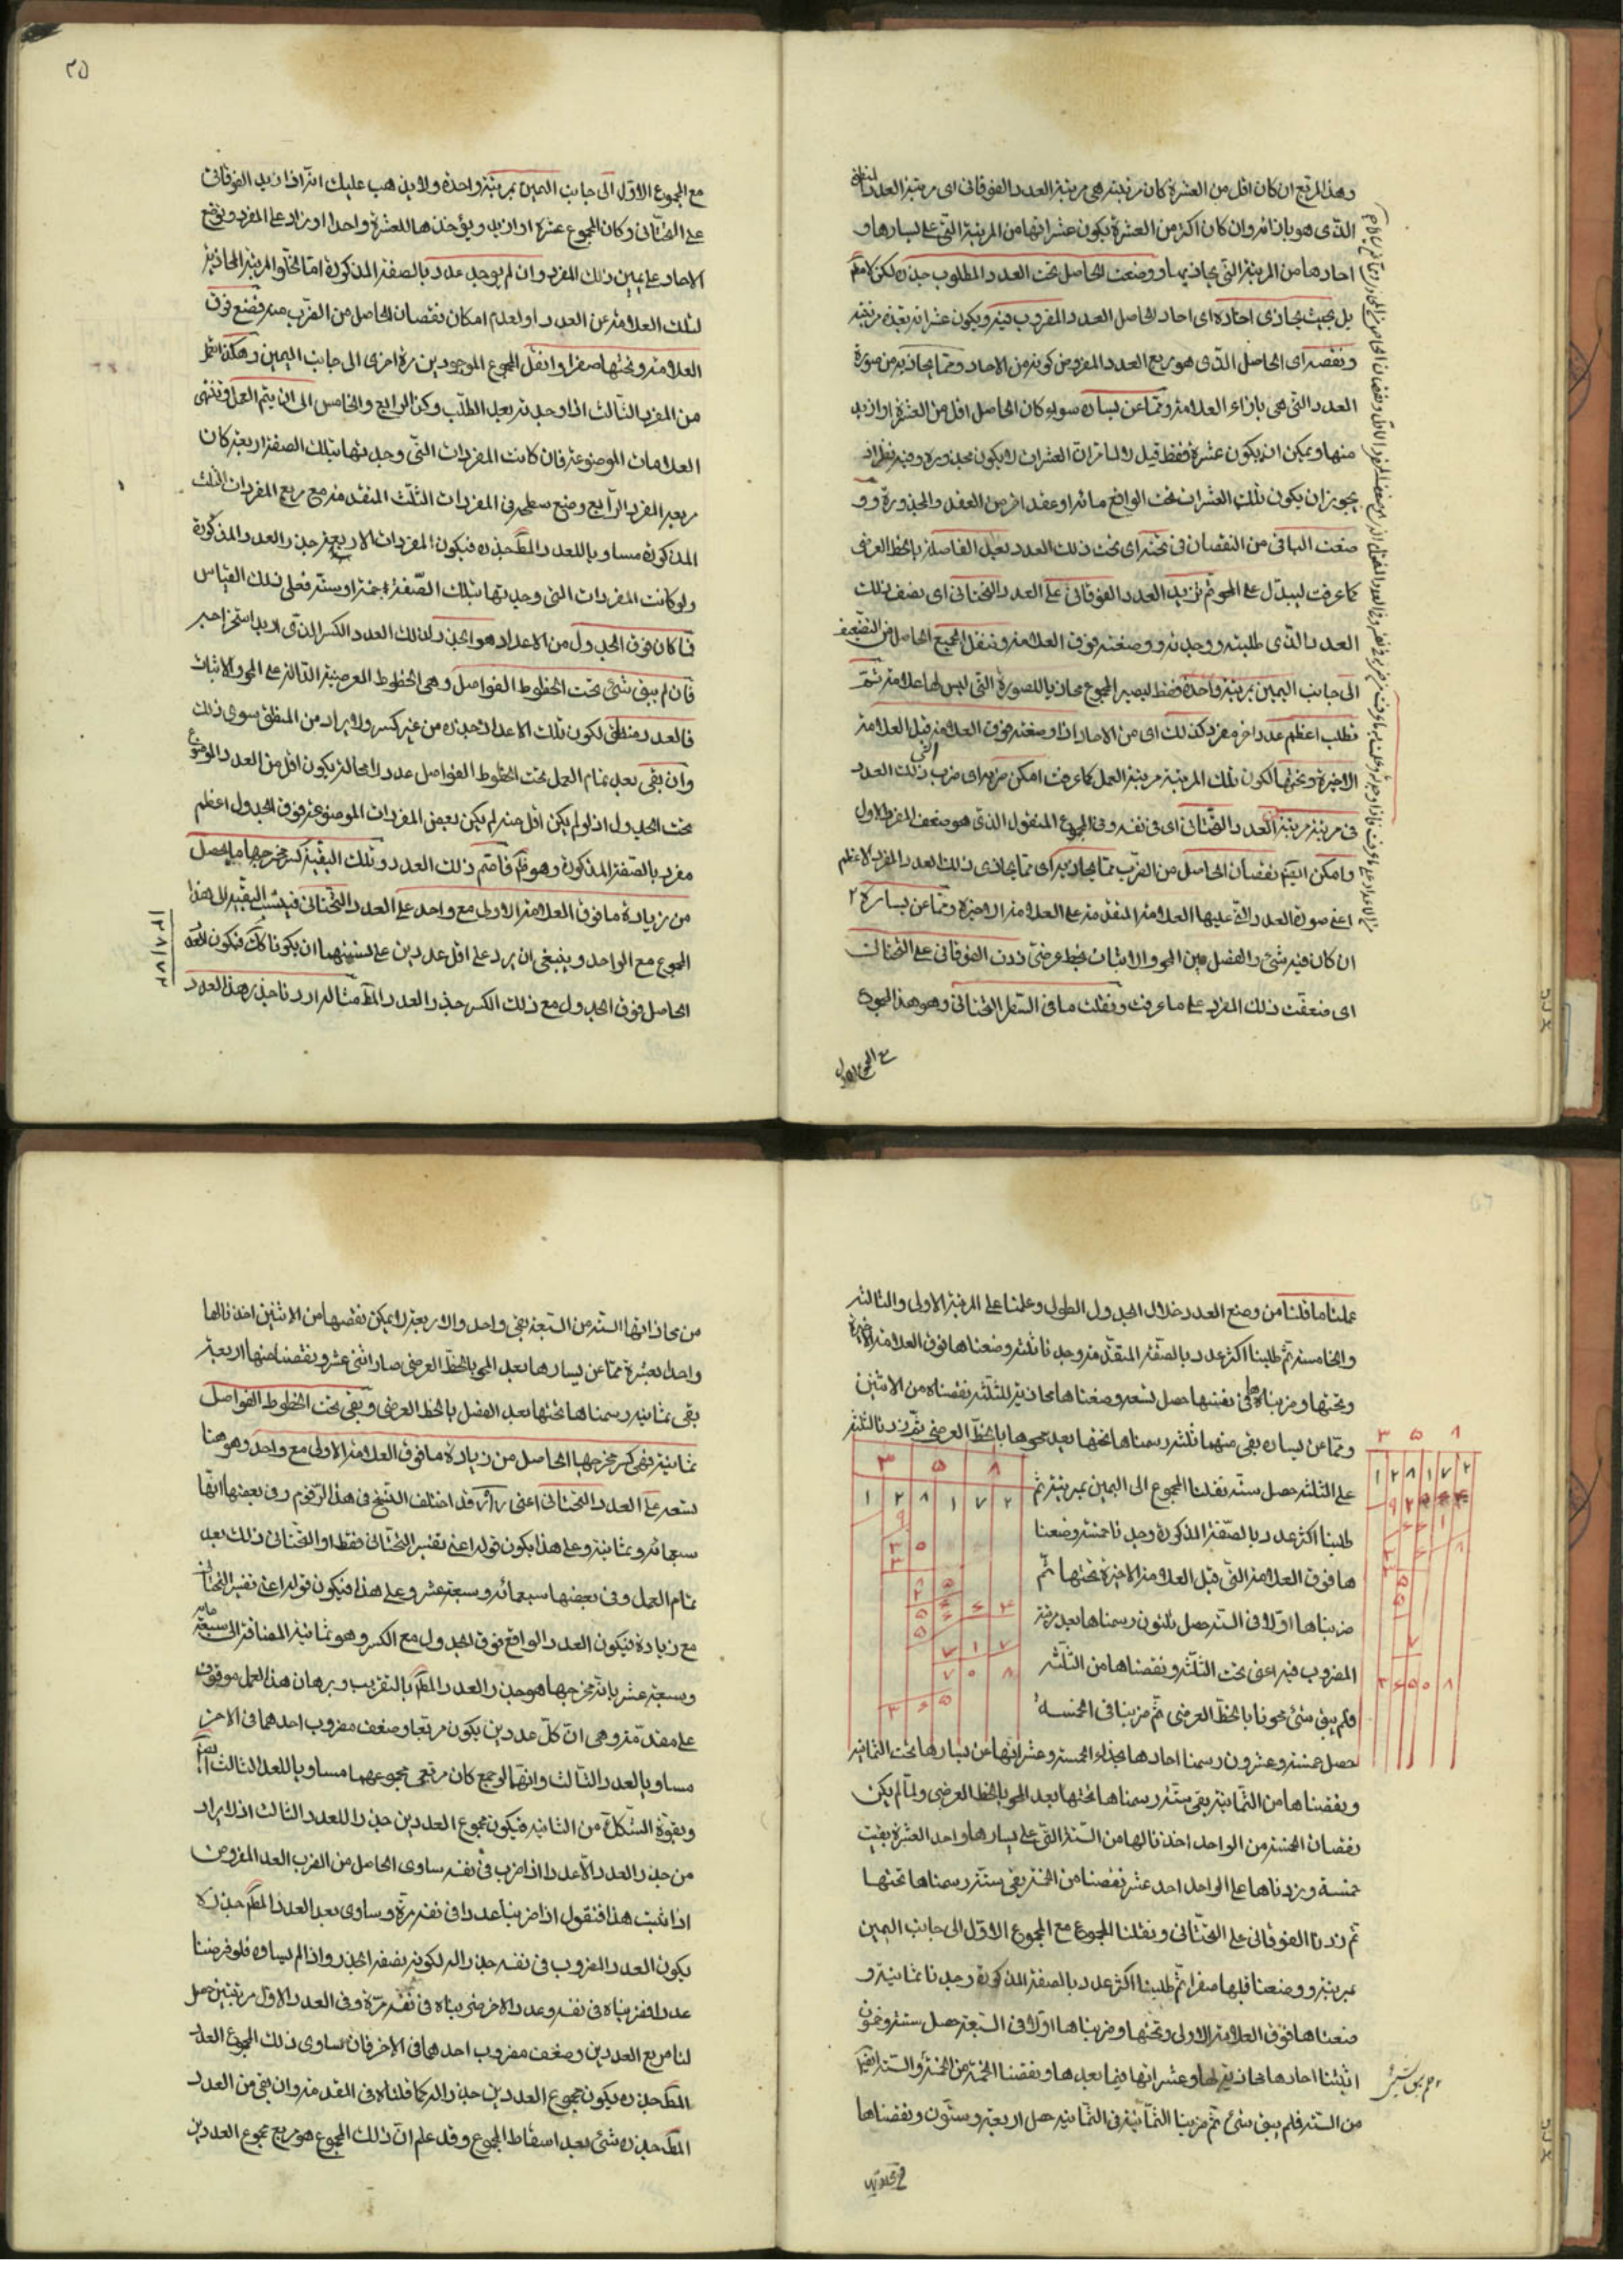 وهذا المربع ان كان اقل من العشرة كان مرتبته هي مرتبة العدد الفوقاني اى مرتبة العدد
الذى هو بازائه وان كان اكثر من العشرة يكون عشراتها من المرتبة التى على يسارها و
احادها من المرتبة التى يحاذيها ووضعت الحاصل تحت العدد المطلوب جذره لكن لا مطلقا
بل بحيث يحاذى احاده اى احاد الحاصل العدد المضروب فيه ويكون عشراته مرتبة
ونقصه اى الحاصل الذى هو ربع العدد المفروض كونه من الاحاد ومما يحاذيه من صورة
العدد التى هى بازاء العلامة ومما عن يساره سواء كان الحاصل اقل من العشرة او ازيد
منها ويمكن ان يكون عشرة فقط قيل لا لما مر ان العشرات لا يكون مجذورة وفيه نظر اذ
يجوز ان يكون تلك العشرات تحت الواقع مائة او عقد اخر من العقد والمجذورة وو
ضعت الباقى من النقصان فى تحته اى تحت ذلك العدد بعد الفاصلة بالخط العرضى
كما عرفت ليدل على المحو ثم تزيد العدد الفوقانى على العدد التحتانى اى يضعف ذلك
العدد الذى طلبته ووجدته ووضعته فوق العلامة وتنقل المجموع الحاصل من التضعيف
الى جانب اليمين بمرتبة واحدة فقط ليصير المجموع محاذيا للصورة التى ليس لها علامة ثم
تطلب اعظم عدد اخر مفرد كذلك اى من الاحاد اذا وضعته فوق العلامة قبل العلامة
الاخيرة وتحتها لكون تلك المرتبة مرتبة العمل كما عرفت امكن ضربه اى ضرب ذلك العدد
فى مرتبة مرتبة العدد التحتانى اى فى نفسه وفى المجموع المنقول الذى هو ضعف المفرد الاول
وامكن ايضا نقصان الحاصل من الضرب مما يحاذيه اى مما يحاذى ذلك العدد المفرد الاعظم
اعنى صورة العدد التى عليها العلامة المتقدمة على العلامة الاخيرة ومما عن يساره ٢
ان كان فيه شئ والفصل بين المحو والاثبات بخط عرضى زدت الفوقانى على التحتانى
اى ضعفت ذلك المفرد على ما عرفت ونقلت ما فى السطر التحتانى وهو هذا المجموع
مع المجموع الاول
٢٥
مع المجموع الاول الى جانب اليمين بمرتبة واحدة ولا يذهب عليك انه اذا زيد الفوقانى
على التحتانى وكان المجموع عشرة او ازيد ويؤخذ هذا للعشرة واحدا وزاد على المفرد ويوضع
الاحاد على يمين ذلك المفرد وان لم يوجد عدد بالصفة المذكورة اما لخلو المرتبة المحاذية
لتلك العلامة عن العدد او لعدم امكان نقصان الحاصل من الضرب منه فضع فوق
العلامة وتحتها صفرا وانقل المجموع الموجودين مرة اخرى الى جانب اليمين وهكذا تعمل
من المفرد الثالث اذا وجدته بعد الطلب وكذا الرابع والخامس الى ان يتم العمل وتنتهى
العلامات الموضوعة فان كانت المفردات التى وجدتها بتلك الصفة اربعة كان
مربع المفرد الرابع وضع سطحه فى المفردات الثلث المتقدمة مع مربع المفردات الثلث
المذكورة مساويا للعدد المط جذره فيكون المفردات الاربعة جذر العدد المذكورة
ولو كانت المفردات التى وجدتها بتلك الصفة خمسة او ستة فعلى ذلك القياس
فما كان فوق الجدول من الاعداد هو الجذر لذلك العدد الكسر الذى اريد استخراجه
فان لم يبق شئ تحت الخطوط الفواصل وهى الخطوط العرضية الدالة على المحو والاثبات
فالعدد منطق لكون تلك الاعداد جذره من غير كسر ولا يراد من المنطق سوى ذلك
وان بقى بعد تمام العمل تحت الخطوط الفواصل عدد لا محالة يكون اقل من العدد الموضوع
تحت الجدول اذ لو لم يكن اقل منه لم يكن بعض المفردات الموضوعة فوق الجدول اعظم
مفرد بالصفة المذكورة وهو ظم فاصم ذلك العدد وتلك البقية كسر مخرجها ما يحصل
من زيادة ما فوق العلامة الاولى مع واحد على العدد التحتانى فينسب البقية الى هذا
المجموع مع الواحد وينبغى ان يرد على اقل عددين على نسبتهما ان يكونا كك فيكون العدد
الحاصل فوق الجدول مع ذلك الكسر جذر العدد المط مثاله اردنا جذر هذا العدد
١٢٨١٧٢
عملنا ما قلنا من وضع العدد خلال الجدول الطول وعلمنا على المرتبة الاولى والثالثة
والخامسة ثم طلبنا اكثر عدد بالصفة المتقدمة وجدنا ثلثة وضعناها فوق العلامة الاخيرة
وتحتها وضربناها فى نفسها حصل تسعة وضعناها محاذية للثلثة نقصناه من الاثنين
ومما عن يساره بقى منهما ثلثة رسمناها تحتها بعد محوها بالخط العرضى ثم زدنا الثلثة
على الثلثة حصل ستة نقلنا المجموع الى اليمين بمرتبة ثم
طلبنا اكثر عدد بالصفة المذكورة وجدنا خمسة وضعنا
ها فوق العلامة التى قبل العلامة الاخيرة وتحتها ثم
ضربناها اولا فى الستة حصل ثلثون رسمناها بعد مرتبة
المضروب فيه اعنى تحت الثلثة ونقصناها من الثلثة
فلم يبق شئ محونا بالخط العرضى ثم ضربنا فى الخمسة
حصل خمسة وعشرون رسمنا احادها بحذاء الخمسة وعشراتها عن يسارها تحت الثمانية
ونقصناها من الثمانية بقى ستة رسمناها تحتها بعد المحو بالخط العرضى ولما لم يكن
نقصان الخمسة من الواحد اخذنا لها من الستة التى على يسارها واحد العشرة بقيت
خمسة وزدناها على الواحد احد عشر نقصنا من الخمسة بقى ستة رسمناها تحتها
ثم زدنا الفوقانى على التحتانى ونقلنا المجموع مع المجموع الاول الى جانب اليمين
بمرتبة ووضعنا قبلها صفرا ثم طلبنا اكثر عدد بالصفة المذكورة وجدنا ثمانية و
ضعناها فوق العلامة الاولى وتحتها وضربناها اولا فى السبعة حصل ستة وخمسون
اثبتنا احادها محاذية لها وعشراتها فيما بعدها ونقصنا الخمسة من الخمسة والستة ايضا
من الستة فلم يبق شئ ثم ضربنا الثمانية فى الثمانية حصل اربعة وستون ونقصناها
٣ ٥ ٨
١ ٢ ٨ ١ ٧ ٢
٣ ٥ ٨
١ ٢ ٨ ١ ٧ ٢
من محاذاتها الستة من السبعة بقى واحد والاربعة لا يمكن نقصها من الاثنين اخذنا لها
واحدا بعشرة مما عن يسارها بعد المحو بالخط العرضى صار اثنى عشر ونقصنا منها اربعة
بقى ثمانية رسمناها تحتها بعد الفصل بالخط العرضى وبقى تحت الخطوط الفواصل
ثمانية فهى كسر مخرجها الحاصل من زيادة ما فوق العلامة الاولى مع واحد وهو هنا
تسعة على العدد التحتانى اعنى ٧٠٨ قد اختلف النسخ فى هذا الرقوم وفى بعضها انها
سبعمائة وثمانية وعلى هذا يكون قوله اعنى تفسير التحتانى فقط او التحتانى ذلك بعد
تمام العمل وفى بعضها سبعمائة وسبعة عشر وعلى هذا فيكون قوله اعنى تفسير التحتانى
مع زيادة فيكون العدد الواقع فوق الجدول مع الكسر وهو ثمانية المضافة الى سبعمائة
وسبعة عشر بانه مخرجها هو جذر العدد المط بالتقريب وبرهان هذا العمل موقوف
على مقدمة وهى ان كل عددين يكون مربعا وضعف مضروب احدهما فى الاخر
مساويا لعدد الثالث وانهما لو جمع كان مربعى مجموعهما مساويا للعدد الثالث ايضا
وبقوة الشكل ٤ من الثانية فيكون مجموع العددين جذرا للعدد الثالث اذ لا يراد
من جذر العدد الا عدد اذا ضرب فى نفسه ساوى الحاصل من الضرب العدد المفروض
اذا ثبت هذا فنقول اذا ضربنا عددا فى نفسه مرة وساوى بعد العدد المط جذره
يكون العدد المضروب فى نفسه جذرا له لكونه بصفة الجذر واذا لم يساوه فلو فرضنا
عددا فضربناه فى نفسه وعددا اخر ضربناه فى نفسه مرة وفى العدد الاول مرتين حصل
لنا مربع العددين وضعف مضروب احدهما فى الاخر فان ساوى ذلك المجموع العدد
المط جذره يكون مجموع العددين جذرا له كما قلناه فى المقدمة وان بقى من العدد
المط جذره شئ بعد اسقاط المجموع وقد علم ان ذلك المجموع هو مربع مجموع العددين